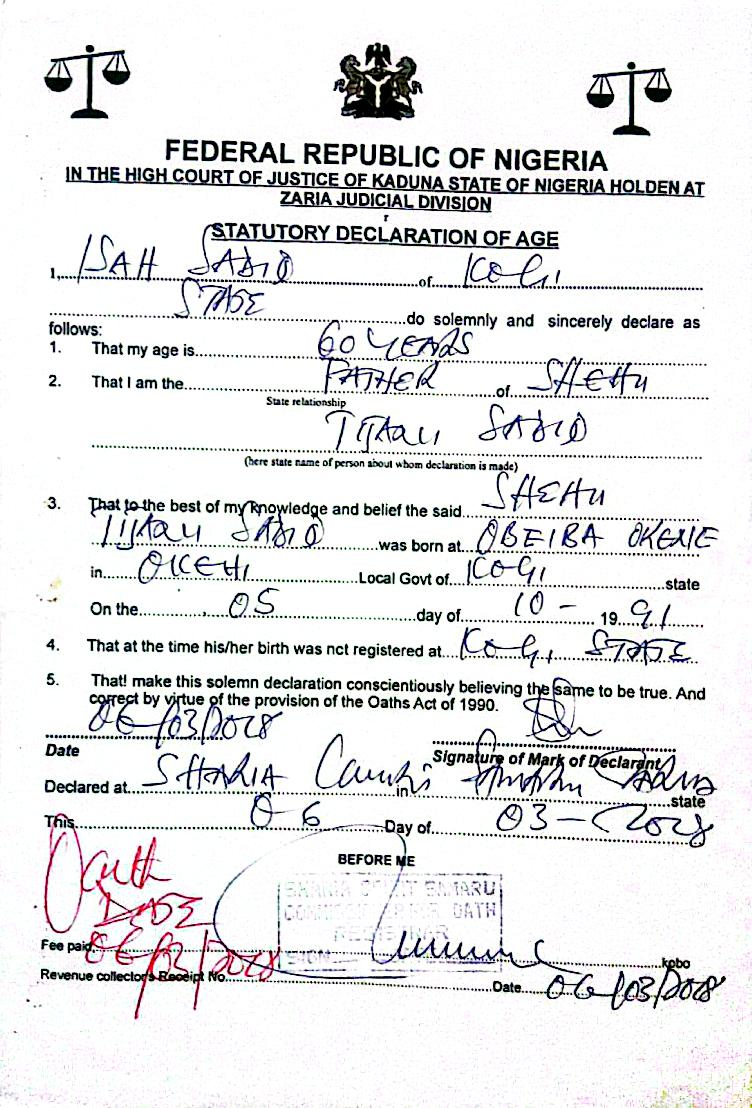 FEDERAL REPUBLIC OF NIGERIA
IN THE HIGH COURT OF JUSTICE OF KADUNA STATE OF NIGERIA HOLDEN AT
ZARIA JUDICIAL DIVISION
STATUTORY DECLARATION OF AGE
1,....ISAH SADIQ....of....KOGI....
....STATE....do solemnly and sincerely declare as
follows:
1. That my age is....60 YEARS....
2. That I am the....FATHER....of....SHEHU
State relationship
TIJANI SADIQ
(here state name of person about whom declaration is made)
3. That to the best of my knowledge and belief the said....SHEHU
TIJANI SADIQ....was born at....OBEIBA OKENE
in....OKEHI....Local Govt of....KOGI....state
On the....05....day of....10 -....19..91
4. That at the time his/her birth was nct registered at....KOGI STATE
5. That! make this solemn declaration conscientiously believing the same to be true. And
correct by virtue of the provision of the Oaths Act of 1990.
06/03/2018
Date
Signature of Mark of Declarant
Declared at....SHARIA Court....in....state
This....06....Day of....03 - 2018
BEFORE ME
Oath
SHARIA COURT SAMARU
COMMISSIONER FOR OATH
REGISTRAR
SIGN
Fee paid....06/03/2018....kobo
Revenue collector's Receipt No....Date....06/03/2018